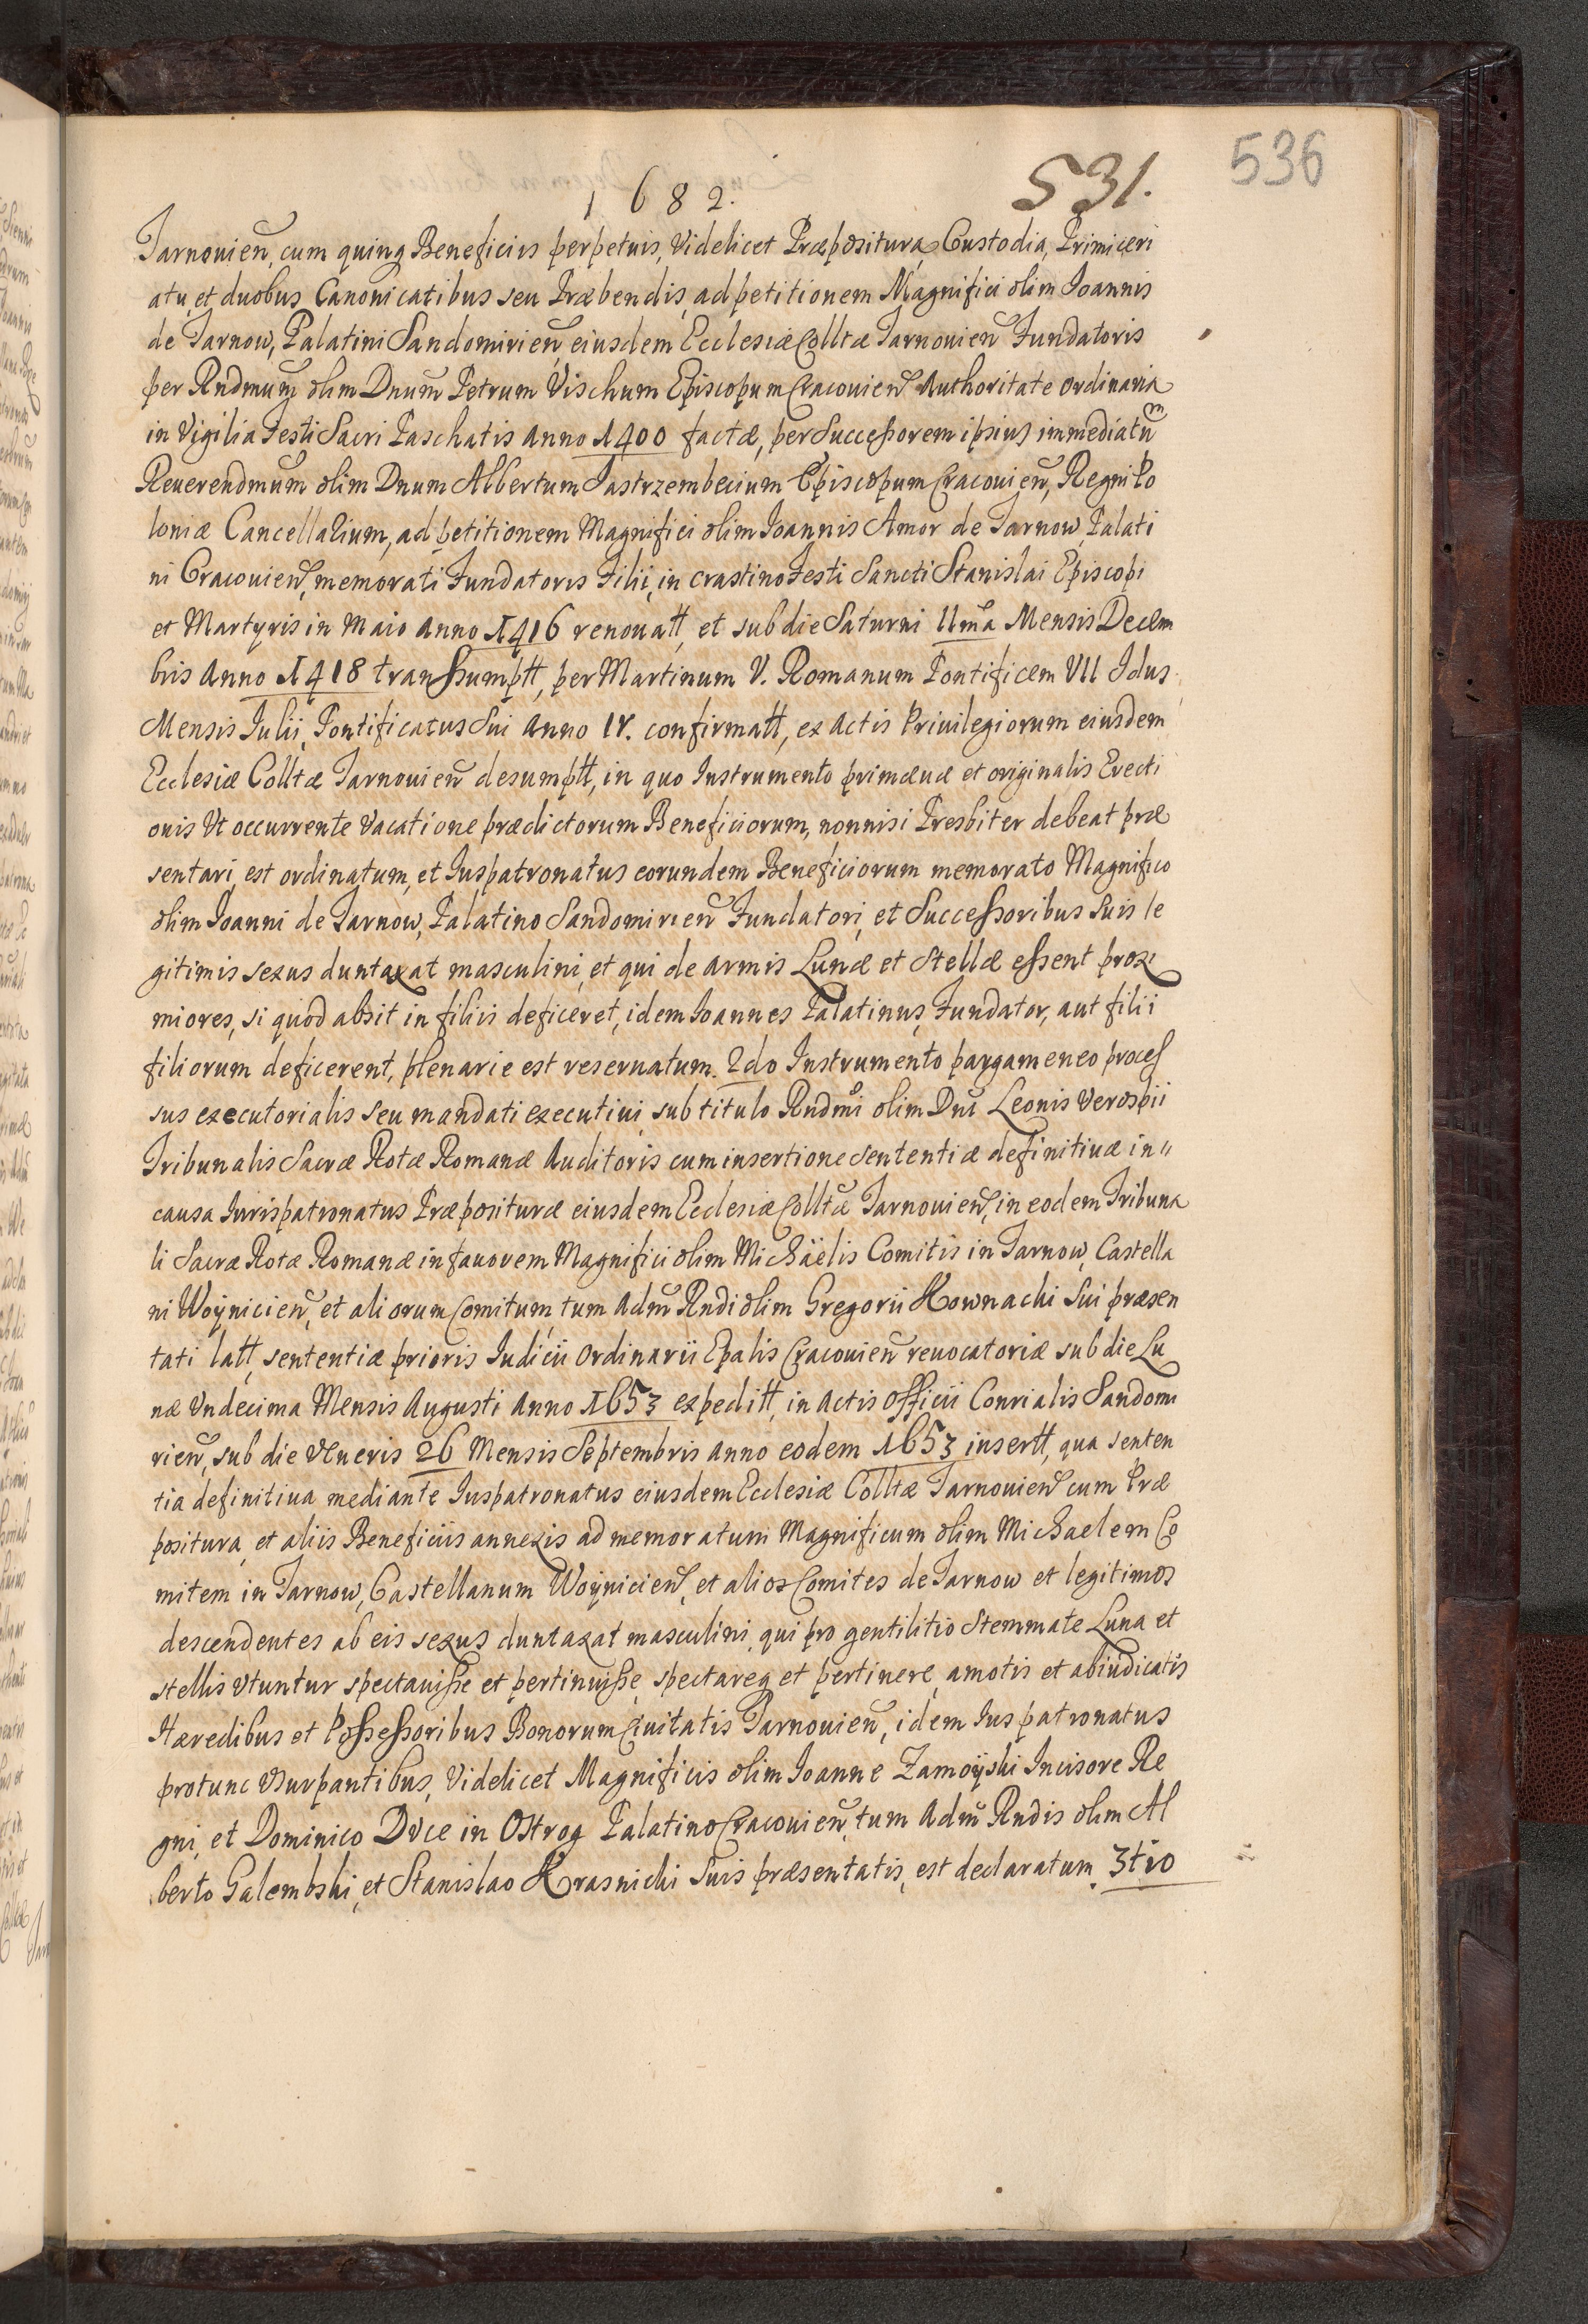 536
531.
1682.
Tarnouien̄, cum quinq Beneficiis perpetuis, Videlicet Præpositura, Custodia, Primiceri
atu, et duobus Canonicatibus seu Præbendis, ad petitionem Magnifici olim Joannis
de Tarnow, Palatini Sandomirien̄ eiusdem Ecclesiæ Colltæ Tarnouien̄ Fundatoris
per Rndmum̄ olim Dnum̄ Petrum Vischum Episcopum Cracouien̄ Authoritate ordinaria
in Vigilia Festi Sacri Paschatis Anno 1400 factæ, per Successorem ipsius immediatūm
Reuerendmum̄ olim Dnum Albertum Jastrzembecium Episcopum Cracouien̄, Regni Po
loniæ Cancellarium, ad petitionem Magnifici olim Joannis Amor de Tarnow, Palati
ni Cracouien̄, memorati Fundatoris Filii, in crastino Festi Sancti Stanislai Episcopi
et Martyris in Maio Anno 1416 renouatt, et sub die Saturni 11ma Mensis Decem
bris Anno 1418 transsumptt, per Martinum V. Romanum Pontificem VII Idus
Mensis Julii, Pontificatus Sui Anno IV. confirmatt, ex Actis Priuilegiorum eiusdem
Ecclesiæ Colltæ Tarnouien̄ desumptt, in quo Instrumento primæuæ et originalis Erecti
onis Vt occurrente Vacatione prædictorum Beneficiorum, nonnisi Presbiter debeat præ
sentari, est ordinatum, et Juspatronatus eorundem Beneficiorum memorato Magnifico
olim Joanni de Tarnow, Palatino Sandomirien̄ Fundatori, et Successoribus suis le
gitimis sexus duntaxat masculini, et qui de armis Lunæ et Stellæ essent proxi
miores, si quod absit in filiis deficeret, idem Joannes Palatinus, Fundator, aut filii
filiorum deficerent, plenarie est reseruatum. 2do Instrumento pargameneo proces
sus executorialis seu mandati executiui, sub titulo Rndmi olim Dni Leonis Verospii
Tribunalis Sacræ Rotæ Romanæ Auditoris cum insertione sententiæ definitiuæ in,,
causa Jurispatronatus Præposituræ eiusdem Ecclesiæ Colltæ Tarnouien̄, in eodem Tribuna
li Sacræ Rotæ Romanæ in fauorem Magnifici olim Michäelis Comitis in Tarnow, Castella
ni Woÿnicien̄, et aliorum Comitum, tum Adm̄ Rndi olim Gregorii Kownacki Sui præsen
tati latt, sententiæ prioris Judicii Ordinarii Epalis Cracouien̄ reuocatoriæ sub die Lu
næ Vndecima Mensis Augusti Anno 1653 expeditt, in Actis Officii Consrialis Sandomi
rien̄, sub die Veneris 26 Mensis Septembris Anno eodem 1653 insertt, qua senten
tia definitiua mediante Juspatronatus eiusdem Ecclesiæ Colltæ Tarnouien̄ cum Præ
positura, et aliis Beneficiis annexis ad memoratum Magnificum olim Michaelem Co
mitem in Tarnow, Castellanum Woÿnicien̄, et alios Comites de Tarnow et legitimos
descendentes ab eis sexus duntaxat masculini, qui pro gentilitio Stemmate Luna et
stellis vtuntur spectauisse et pertinuisse, spectareq et pertinere, amotis et abiudicatis
Hæredibus et Possessoribus Bonorum Ciuitatis Tarnouien̄, idem Juspatronatus
protunc Vsurpantibus, Videlicet Magnificis olim Joanne Zamoÿski Incisore Re
gni, et Dominico Duce in Ostrog Palatino Cracouien̄, tum Adm̄ Rndis olim Al
berto Galembski, et Stanislao Krasnicki Suis præsentatis, est declaratum. 3tio